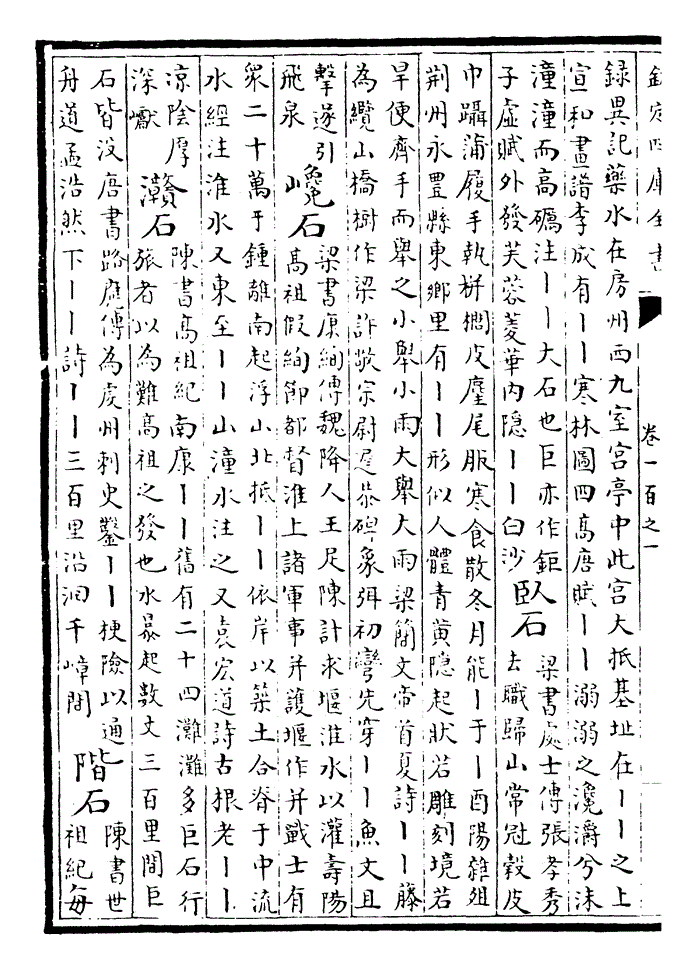 欽定四庫全書
卷一百之一
録異記藥水在房州西九室宫亭中此宫大抵基址在丨丨之上
宣和畫譜李成有丨丨寒林圖四高唐賦丨丨溺溺之瀺灂兮沬
潼潼而高礪注丨丨大石也巨亦作鉅
子虚賦外發芙蓉菱華内隠丨丨白沙
臥石
梁書處士傳張孝秀
去職歸山常冠穀皮
巾躡蒲履手執栟櫚皮麈尾服寒食散冬月能丨于丨酉陽雜俎
荆州永豐縣東鄉里有丨丨形似人體青黄隠起狀若雕刻境若
旱便齊手而舉之小舉小雨大舉大雨梁簡文帝首夏詩丨丨藤
為纜山橋樹作梁許敬宗尉遲恭碑象弭初彎先穿丨丨魚文且
擊遂引
飛泉
巉石
梁書康絢傳魏降人王足陳計求堰淮水以灌壽陽
高祖假絢節都督淮上諸軍事并護堰作并戰士有
衆二十萬于鍾離南起浮山北抵丨丨依岸以築土合脊于中流
水經注淮水又東至丨丨山潼水注之又袁宏道詩古根老丨丨
涼陰厚
深巘
灨石
陳書高祖紀南康丨丨舊有二十四灘灘多巨石行
旅者以為難高祖之發也水暴起數丈三百里間巨
石皆没唐書路應傳為虔州刺史鑿丨丨梗險以通
舟道孟浩然下丨丨詩丨丨三百里沿洄千嶂間
階石
陳書世
祖紀每